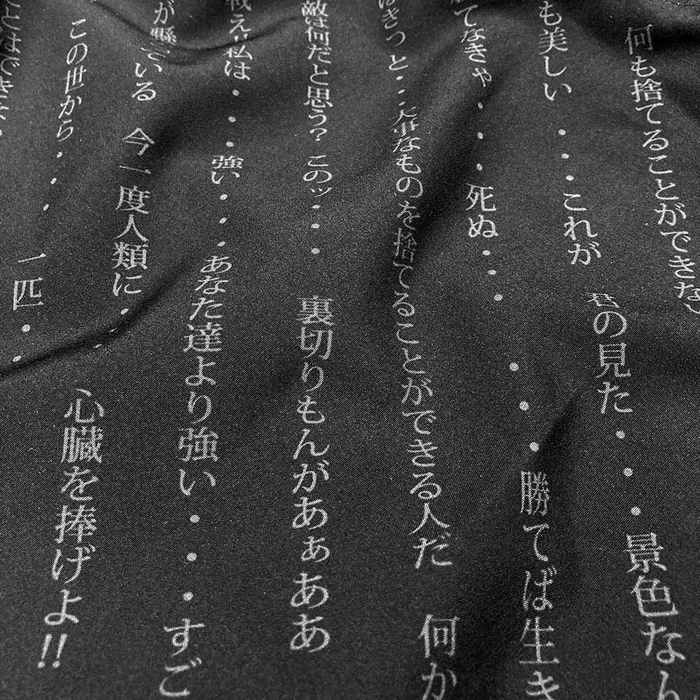 何も捨てることができな
も美しい ...これが 君の見た... 景色なん
てなきゃ....死ぬ... ...勝てば生き
はきっと...大事なものを捨てることができる人だ 何か
敵は何だと思う? このッ... 裏切りもんがあぁああ
戦え 私は...強い...あなた達より強い...すご
が懸っている 今一度人類に...心臓を捧げよ!!
この世から... 一匹...
とはできな